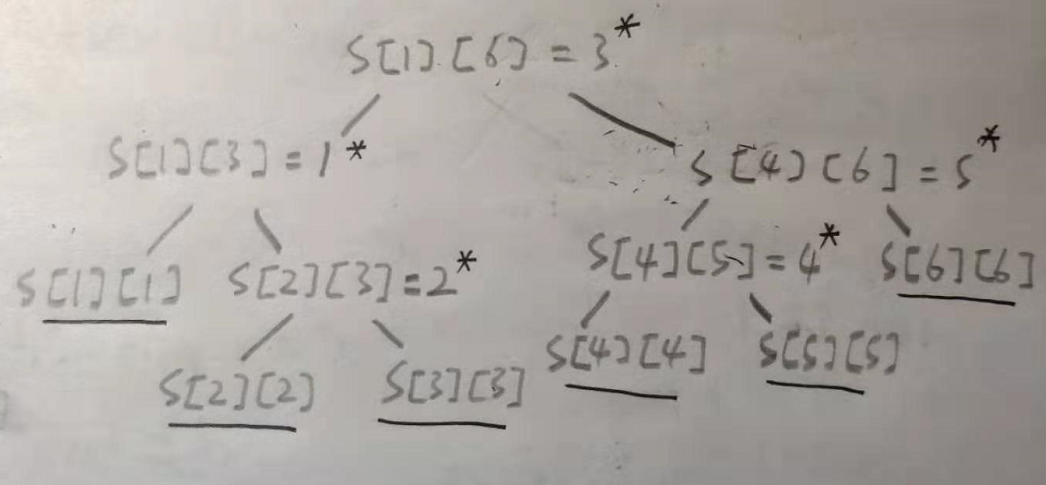 S[1][6] = 3*
S[1][3] = 1* S[4][6] = 5*
S[1][1] S[2][3] = 2* S[4][5] = 4* S[6][6]
S[2][2] S[3][3] S[4][4] S[5][5]